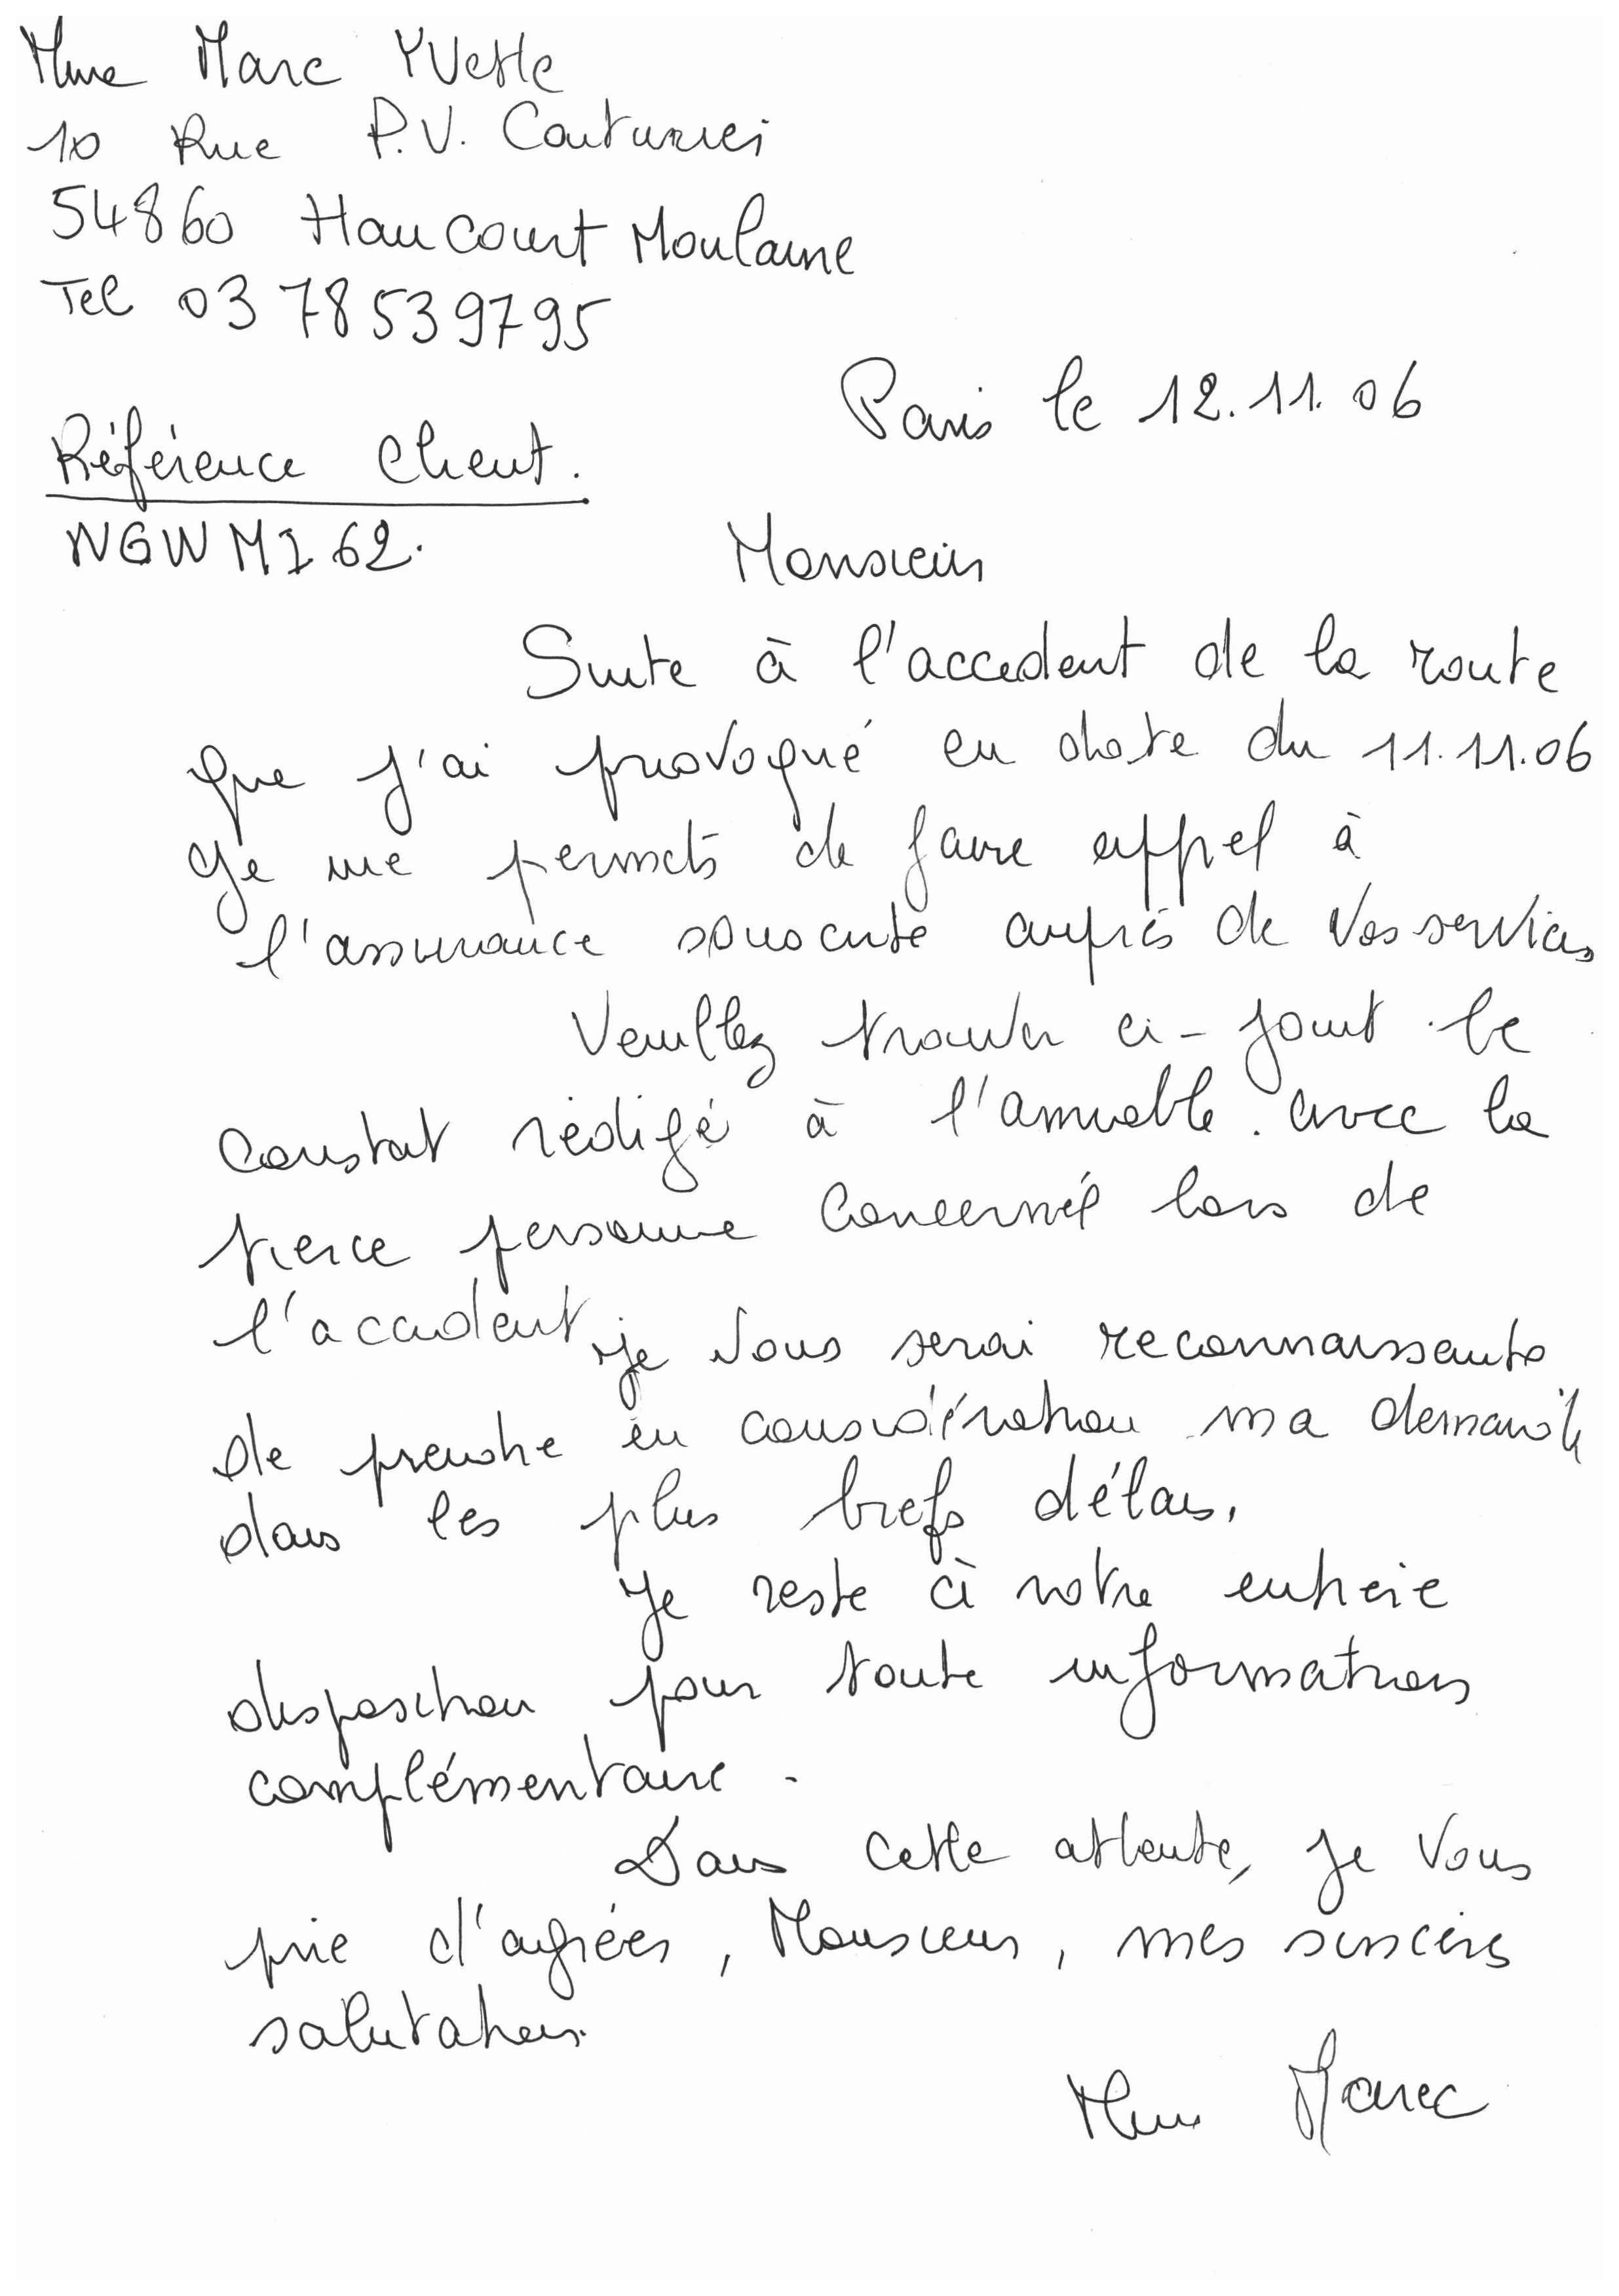 Mme Marc Yvette
10 Rue P.V. Couturier
54860 Haucourt Moulaine
Tel 03 78 53 97 95
Paris le 12.11.06
Référence Client.
NGWMI62.
Monsieur
Suite à l'accedent de la route
que j'ai provoqué en date du 11.11.06
Je me permets de faire appel à
l'assurance souscrite auprès de vos services
Veuillez trouver ci-joint le
constat rédigé à l'amiable avec la
tierce personne concerné lors de
l'accident, je vous serai reconnaissante
de prendre en considération ma demande
dans les plus brefs délais.
Je reste à notre entière
disposition pour toute informations
complémentaire.
Dans cette attente, je vous
prie d'agréer, Monsieur, mes sincères
salutations.
Mme Marc